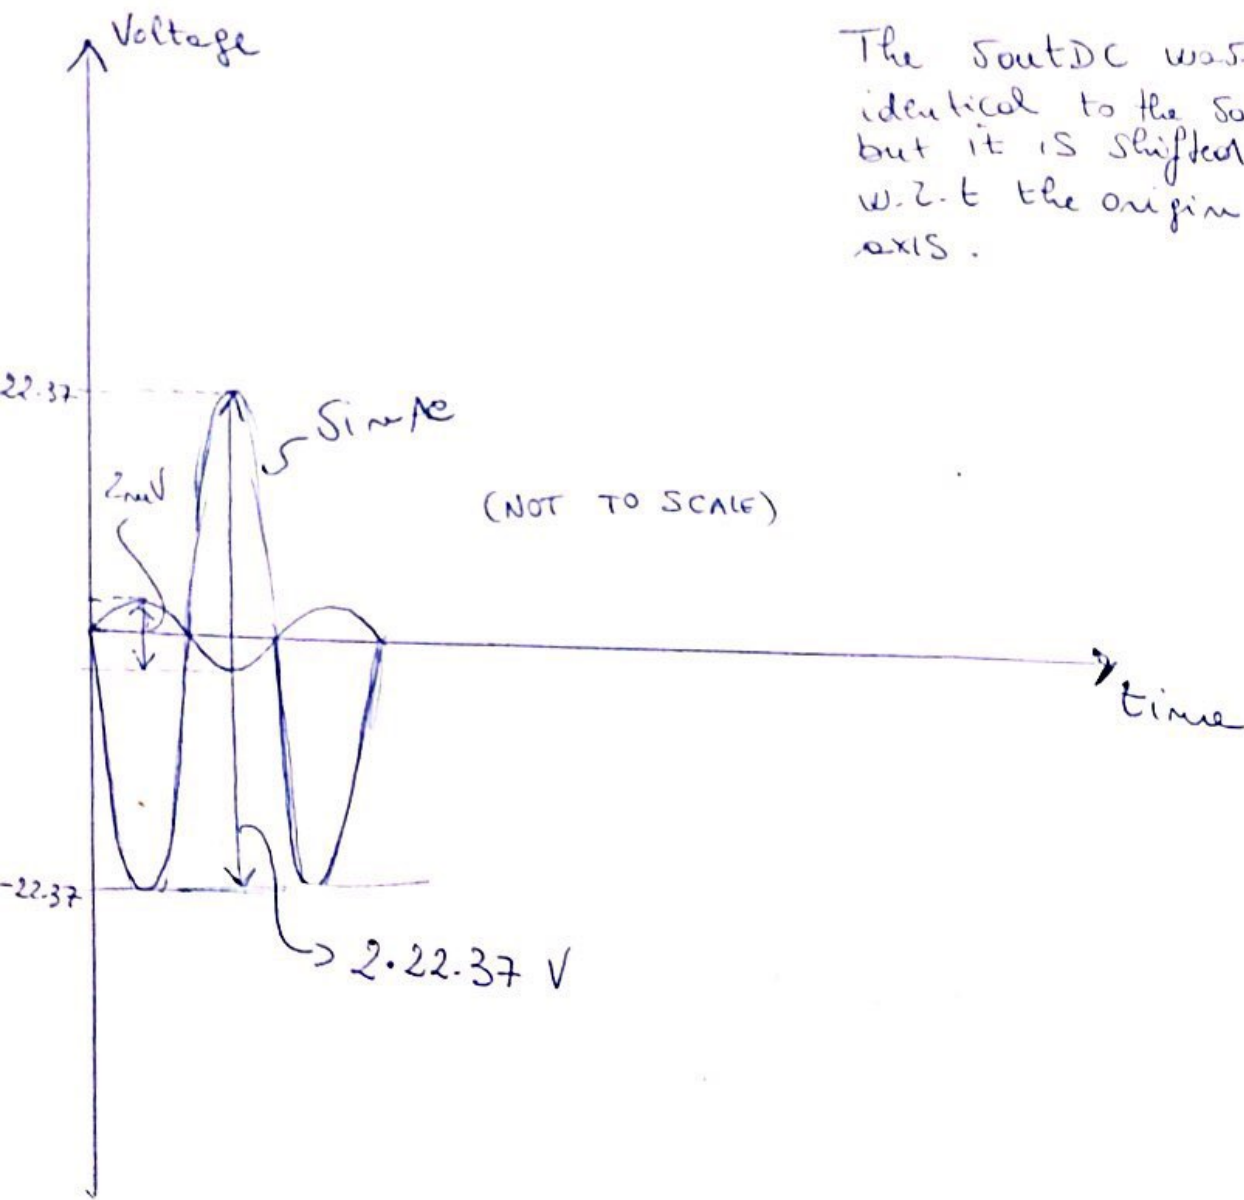 Voltage
The SoutDC was
identical to the So
but it is shifted
w.r.t the origin
axis.
22.37
2mV
(NOT TO SCALE)
time
-22.37
2.22.37 V